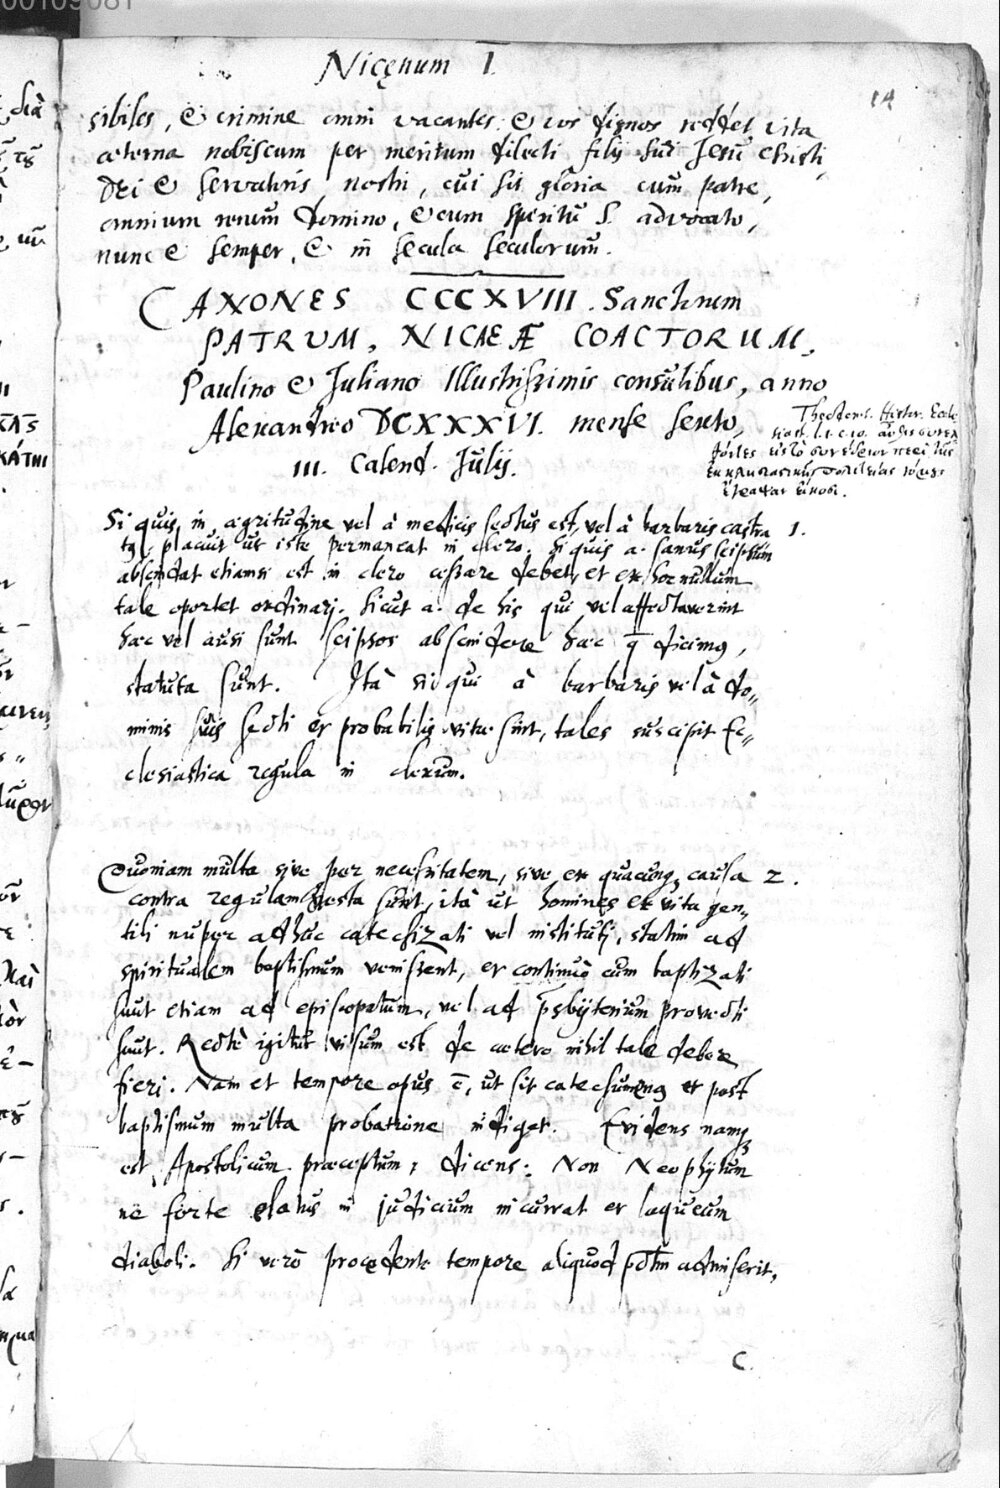 Nicęnum I.
14
sibiles, & crimine omni vacantes: & vos dignos reddet vita
æterna nobiscum per meritum dilecti filij sui Jesu Christi,
Dei & Servatoris nostri, cui sit gloria cum patre,
omnium rerum domino, & cum Spiritu S. advocato,
nunc & semper, & in secula seculorum.
CANONES CCCXVIII. Sanctorum
PATRUM, NICAEÆ COACTORUM,
Paulino & Juliano Illustrissimis consulibus, anno
Alexandri DCXXXVI. mense sexto,
III. Calend. Julij.
Theodoret. Histor. Eccle-
siast. l. 1. c. 10. αὖθις συνελ
θόντες εἰς τὸ συνέδριον περὶ τῆς
ἐκκλησιαστικῆς πολιτείας νόμους
ἔγραψαν εἴκοσι.
Si quis in ægritudine vel à medicis sectus est, vel à barbaris castra 1.
tꝫ, placuit ut iste permaneat in clero. Si quis a. sanus seipsum
abscindat etiamsi est in clero cessare debet, et ex hoc nullum
tale oportet ordinarj. Sicut a. de his qui vel affectaverint
hæc vel ausi sunt seipsos abscindere hæc q̄ dicimꝰ,
statuta sunt. Ità si qui à barbaris vel à do„
minis suis secti et probabilis vitæ sint, tales suscipit Ec„
clesiastica regula in clerum.
Quoniam multa sive per necessitatem, sive ex quacunqꝫ causa 2.
contra regulam gesta sunt, ità ut homines ex vita gen„
tili nuper adhuc catechizati vel instituti, statim ad
spiritualem baptismum venissent, et continuò cum baptizati
sunt etiam ad episcopatum, vel ad p̄sbyterium provecti
sunt. Rectè igitur visum est de cætero nihil tale debere
fieri. Nam et tempore opus ē, ut sit catechumenꝰ et post
baptismum multa probatione indiget. Evidens namqꝫ
est Apostolicum præceptum, dicens: Non Neophytum
ne forte elatus in judicium incurrat et laqueum
diaboli. Si verò procędente tempore aliquod p̄ctm̄ admiserit,
C.